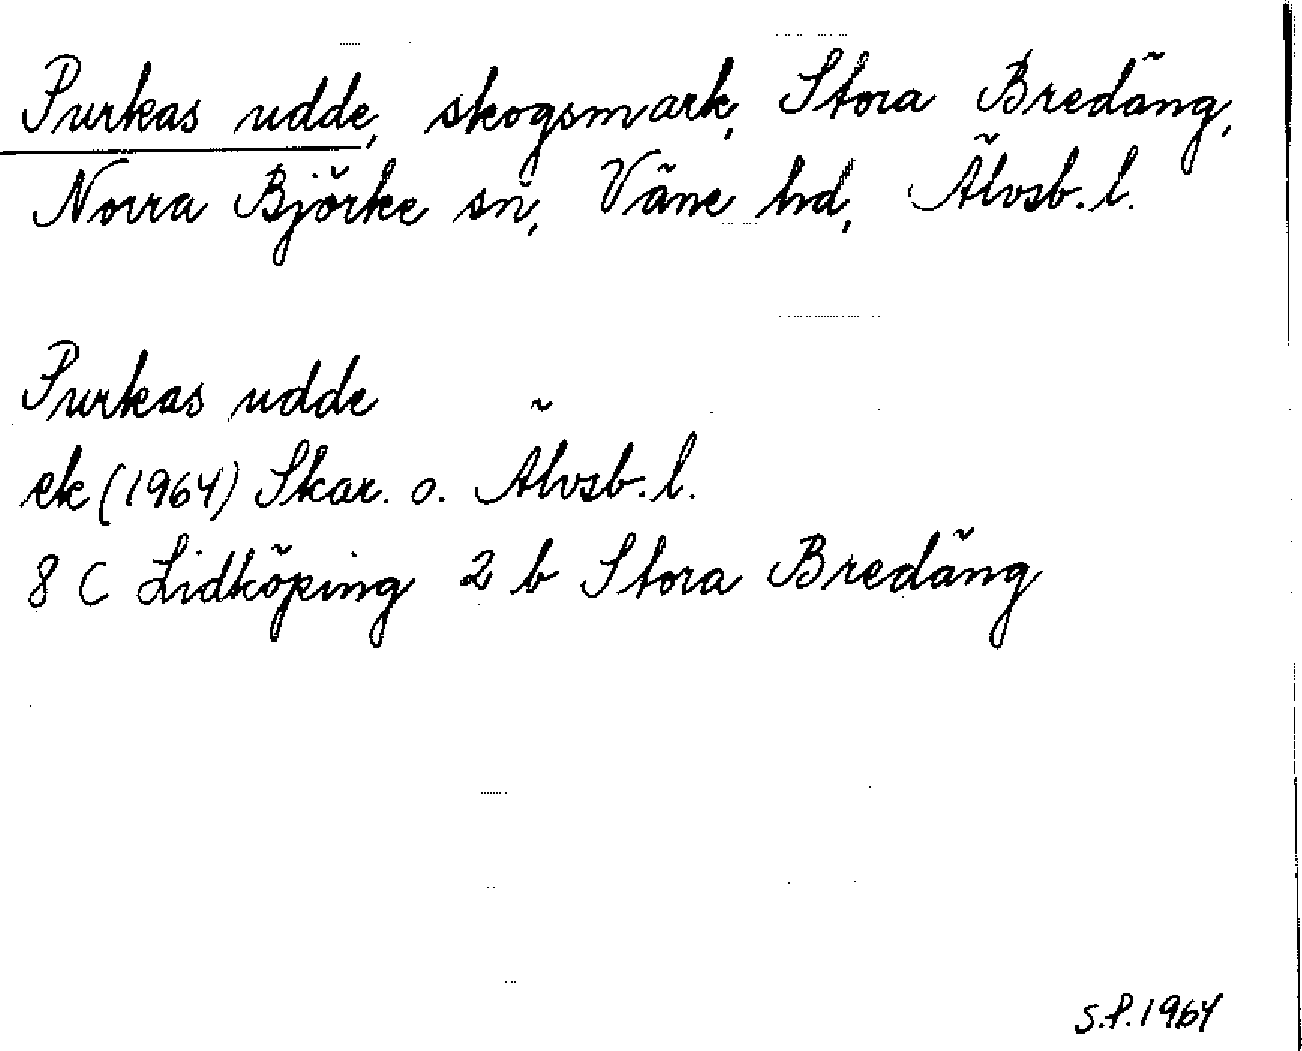 Purkas udde, skogsmark, Stora Bredäng,
Norra Björke sn, Väne hd, Älvsb. l.
Purkas udde
ek (1964) Skar. o. Älvsb. l.
8 C Lidköping 2 b Stora Bredäng
S.P. 1964